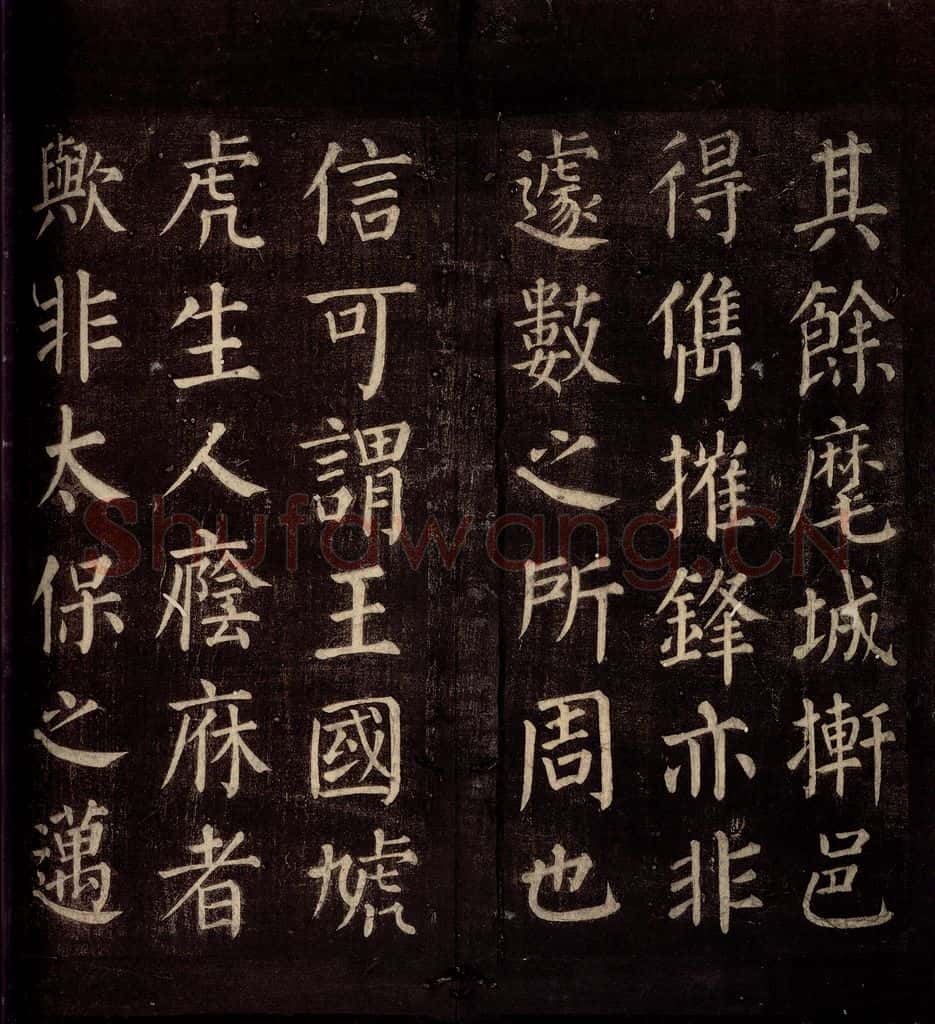 其餘麾城摲邑
得儁摧鋒亦非
遽數之所周也
信可謂王國虓
虎生人廕庥者
歟非太保之邁
Shufawang.CN